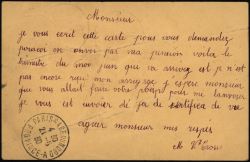 Monsieur
je vous ecrit cette carte pour vous demander
pourcoi on envoi par ma pension voila le
huitaine du moi juin qui va arrivez est je n'est
pas encore reçu mon arrierage j'espère monsieur
que vous allait faire votre posible pour me l'envoyer
je vous est envoier di ja de sertifica de vie
agreer monsieur mes respes
M
PARIS